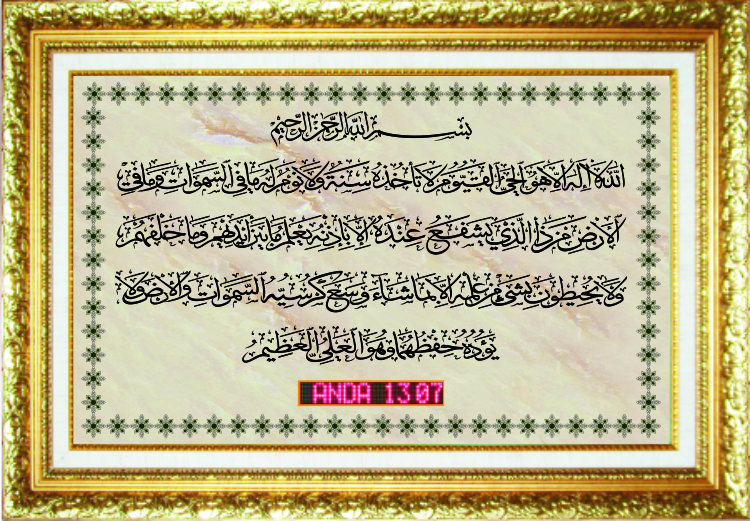 بسم الله الرحمن الرحيم
الله لا إله إلا هو الحي القيوم لا تأخذه سنة ولا نوم له ما في السموات وما في
الارض من ذا الذي يشفع عنده الا باذنه يعلم ما بين ايديهم وما خلفهم
ولا يحيطون بشئ من علمه الا بما شاء وسع كرسيه السموات والارض ولا
يؤده حفظهما وهو العلي العظيم
ANDA 13 07